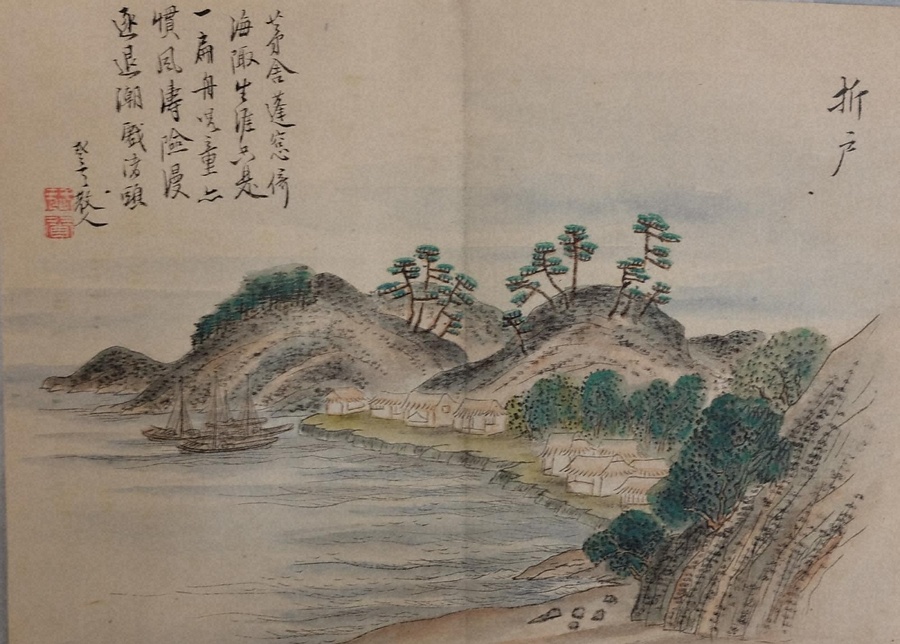 折戸
茅舎蓬窓倚
海陬生涯只是
一扁舟児童亦
慣風濤険漫
逐退潮戯渚頭
散人